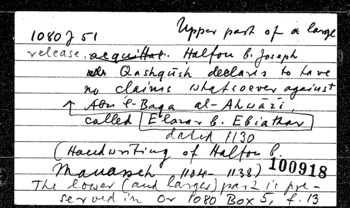 1080 J 51 Upper part of a large
release, acquittal. Halfon b. Joseph
Qashqūsh declares to have
no claims whatsoever against
↑ Abu 'l-Baqa al-Ahwāzi
called Elazar b. Ebiathar
dated 1130
(Handwriting of Halfon b.
Manasseh 1104-1138) 100918
The lower (and larger) part is pre-
served in Or 1080 Box 5, f. 13